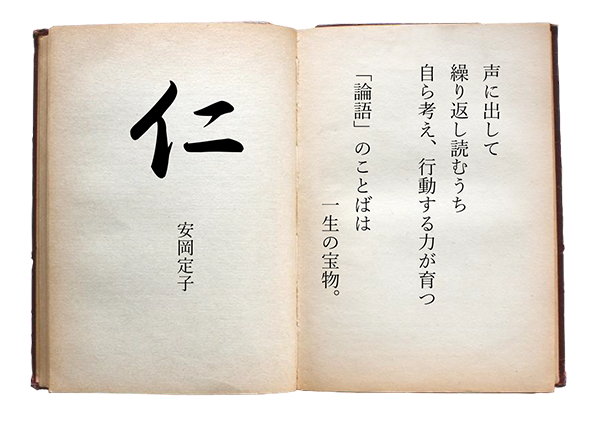 声に出して
繰り返し読むうち
自ら考え、行動する力が育つ
「論語」のことばは
一生の宝物。
仁
安岡定子